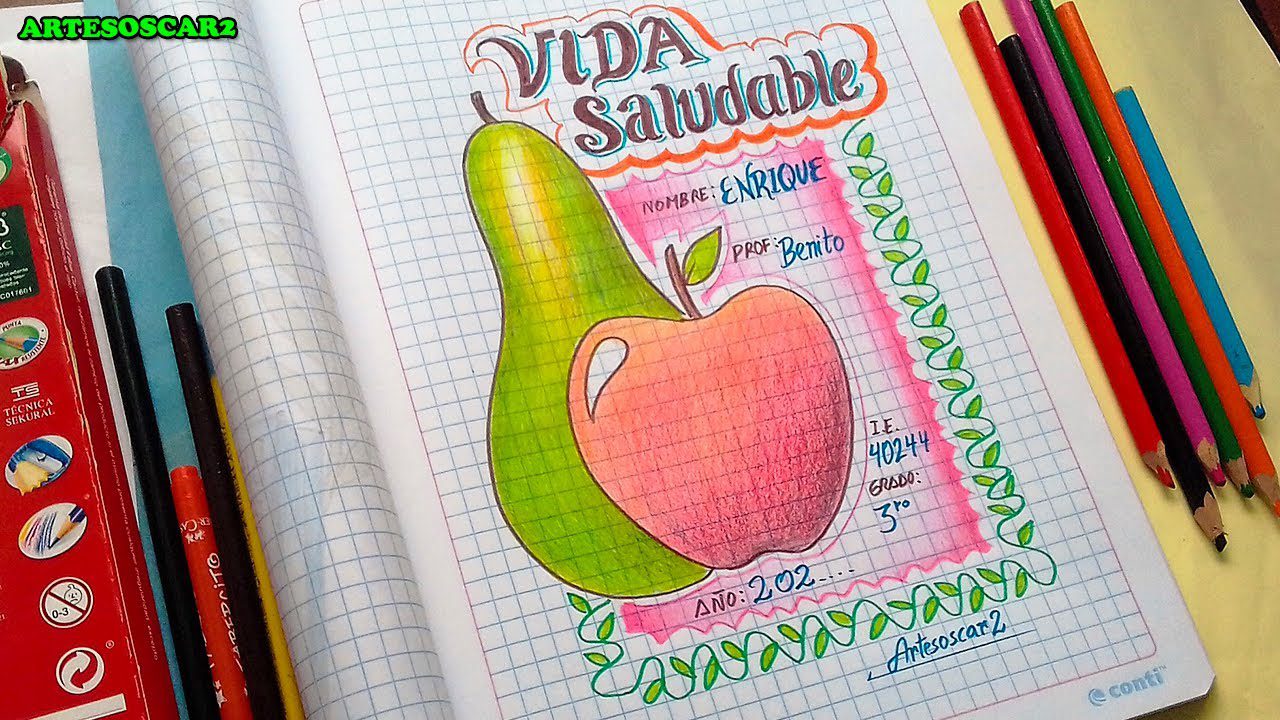 ARTESOSCAR2
VIDA
Saludable
NOMBRE: ENRIQUE
PROF: Benito
I.E.
40244
GRADO:
3ro
AÑO: 202....
Artesoscar2
conti
TS
TÉCNICA
SEKURAL
PUNTA
0-3
C017601